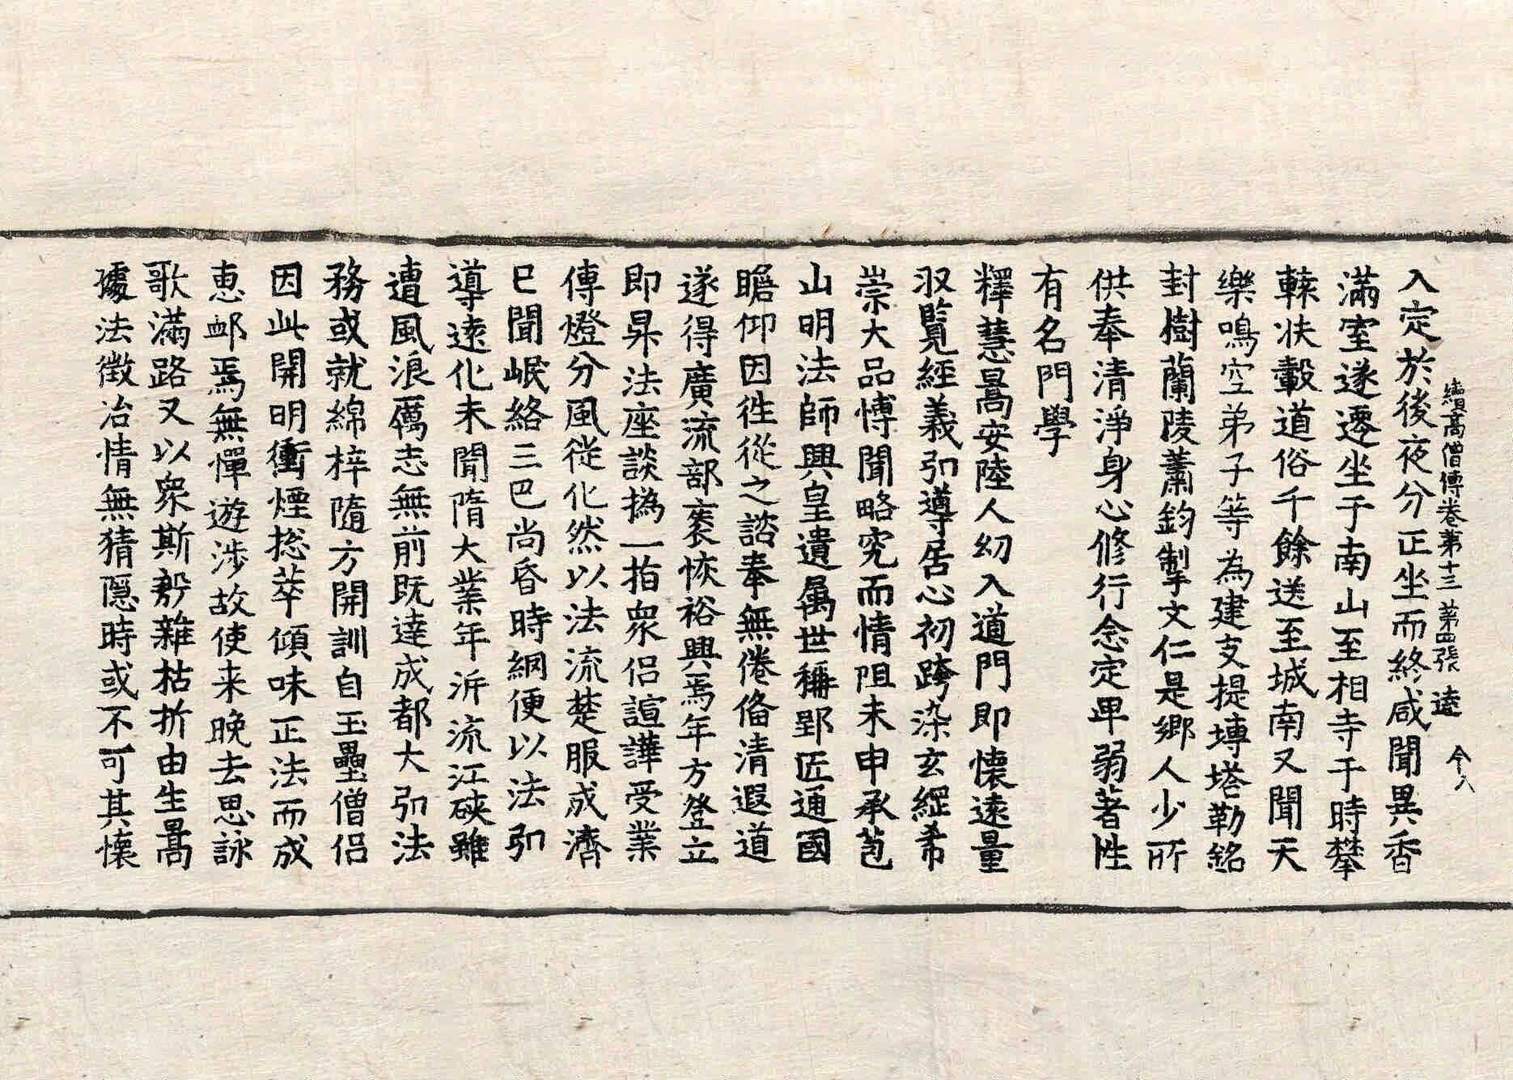 續高僧傳卷第十三 第四張 遠 令八
入定於後夜分正坐而終咸聞異香
滿室遂遷坐于南山至相寺于時攀
轅扶轂道俗千餘送至城南又聞天
樂鳴空弟子等為建支提塼塔勒銘
封樹蘭陵蕭鈞掣文仁是鄉人少所
供奉清淨身心修行念定卑弱著性
有名門學
釋慧暠安陸人幼入道門即懷遠量
収覽經義引導居心初跨染玄經希
崇大品博聞略究而情阻未申承苞
山明法師興皇遺属世稱郢匠通國
瞻仰因往從之諮奉無倦俻清遐道
遂得廣流部袠恢裕興焉年方登立
即昇法座談撝一指衆侶諠譁受業
傳燈分風従化然以法流楚服成濟
已聞岷絡三巴尚昏時網便以法引
導遠化未聞隋大業年泝流江硤雖
遭風浪厲志無前既達成都大引法
務或就綿梓隨方開訓自玉壘僧侶
因此開明衝煙捴萃傾味正法而成
恵䘏焉無憚遊涉故使来晚去思詠
歌滿路又以衆斯㲉雜枯折由生暠
據法徴治情無猜隱時或不可其懷